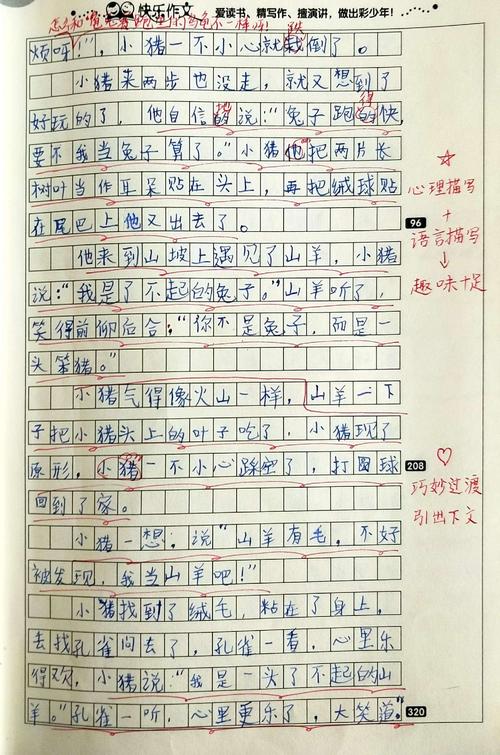 快乐作文 爱读书、精写作、擅演讲，做出彩少年！
跌
烦呀！”，小猪一不小心就栽倒了。
小猪来两步也没走，就又想到了
地 得
好玩的了，他自信的说：“兔子跑的快，
要不我当兔子算了。”小猪他把两片长
树叶当作耳呆贴在头上，再把绒球贴
在尾巴上他又出去了。
他来到山坡上遇见了山羊，小猪
说：“我是了不起的兔子。”山羊听了，
笑得前仰后合：“你不是兔子，而是一
头笨猪。”
小猪气得像火山一样，山羊一下
子把小猪头上的叶子吃了，小猪现了
原形，小猪一不小心踩空了，打圆球
回到了家。
小猪一想：说“山羊有毛，不好
被发现，我当山羊吧！”
小猪找到了绒毛，粘在了身上，
去找孔雀问去了，孔雀一看，心里乐
得欢，小猪说：“我是一头了不起的山
羊。”孔雀一听，心里更乐了，大笑道。“
心理描写
+
96
语言描写
↓
趣味十足
208
巧妙过渡
引出下文
320